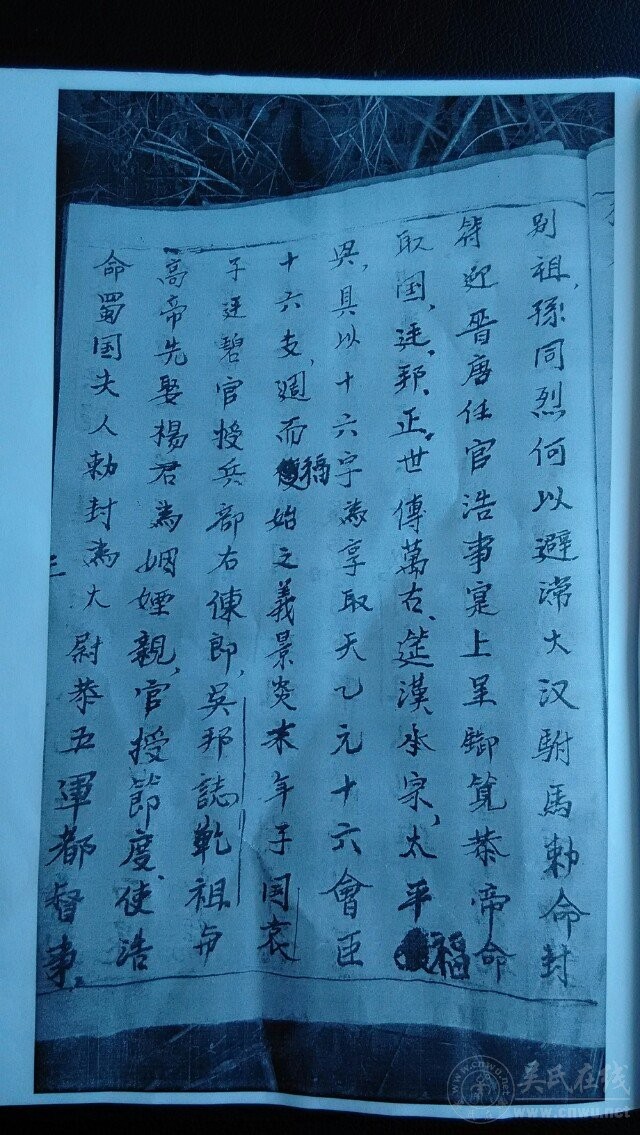 别祖，孫同烈何以避滞大汉駙馬勅命封
符迎晋唐任官浩事寔上呈御覧恭帝命
取国，廷，邦，正，世傳萬古，莚漢，承宗，太平福
吳，具以十六字為享取天乙元十六會臣
十六支，週而福始之義景炎末年子国哀
子廷碧官授兵部右侍郎，吳邦誌乾祖与
高帝先娶楊君為姻娅親，官授節度使浩
命蜀国夫人勅封為大尉恭五軍都督事，
三
吴氏在线
www.cnwu.net